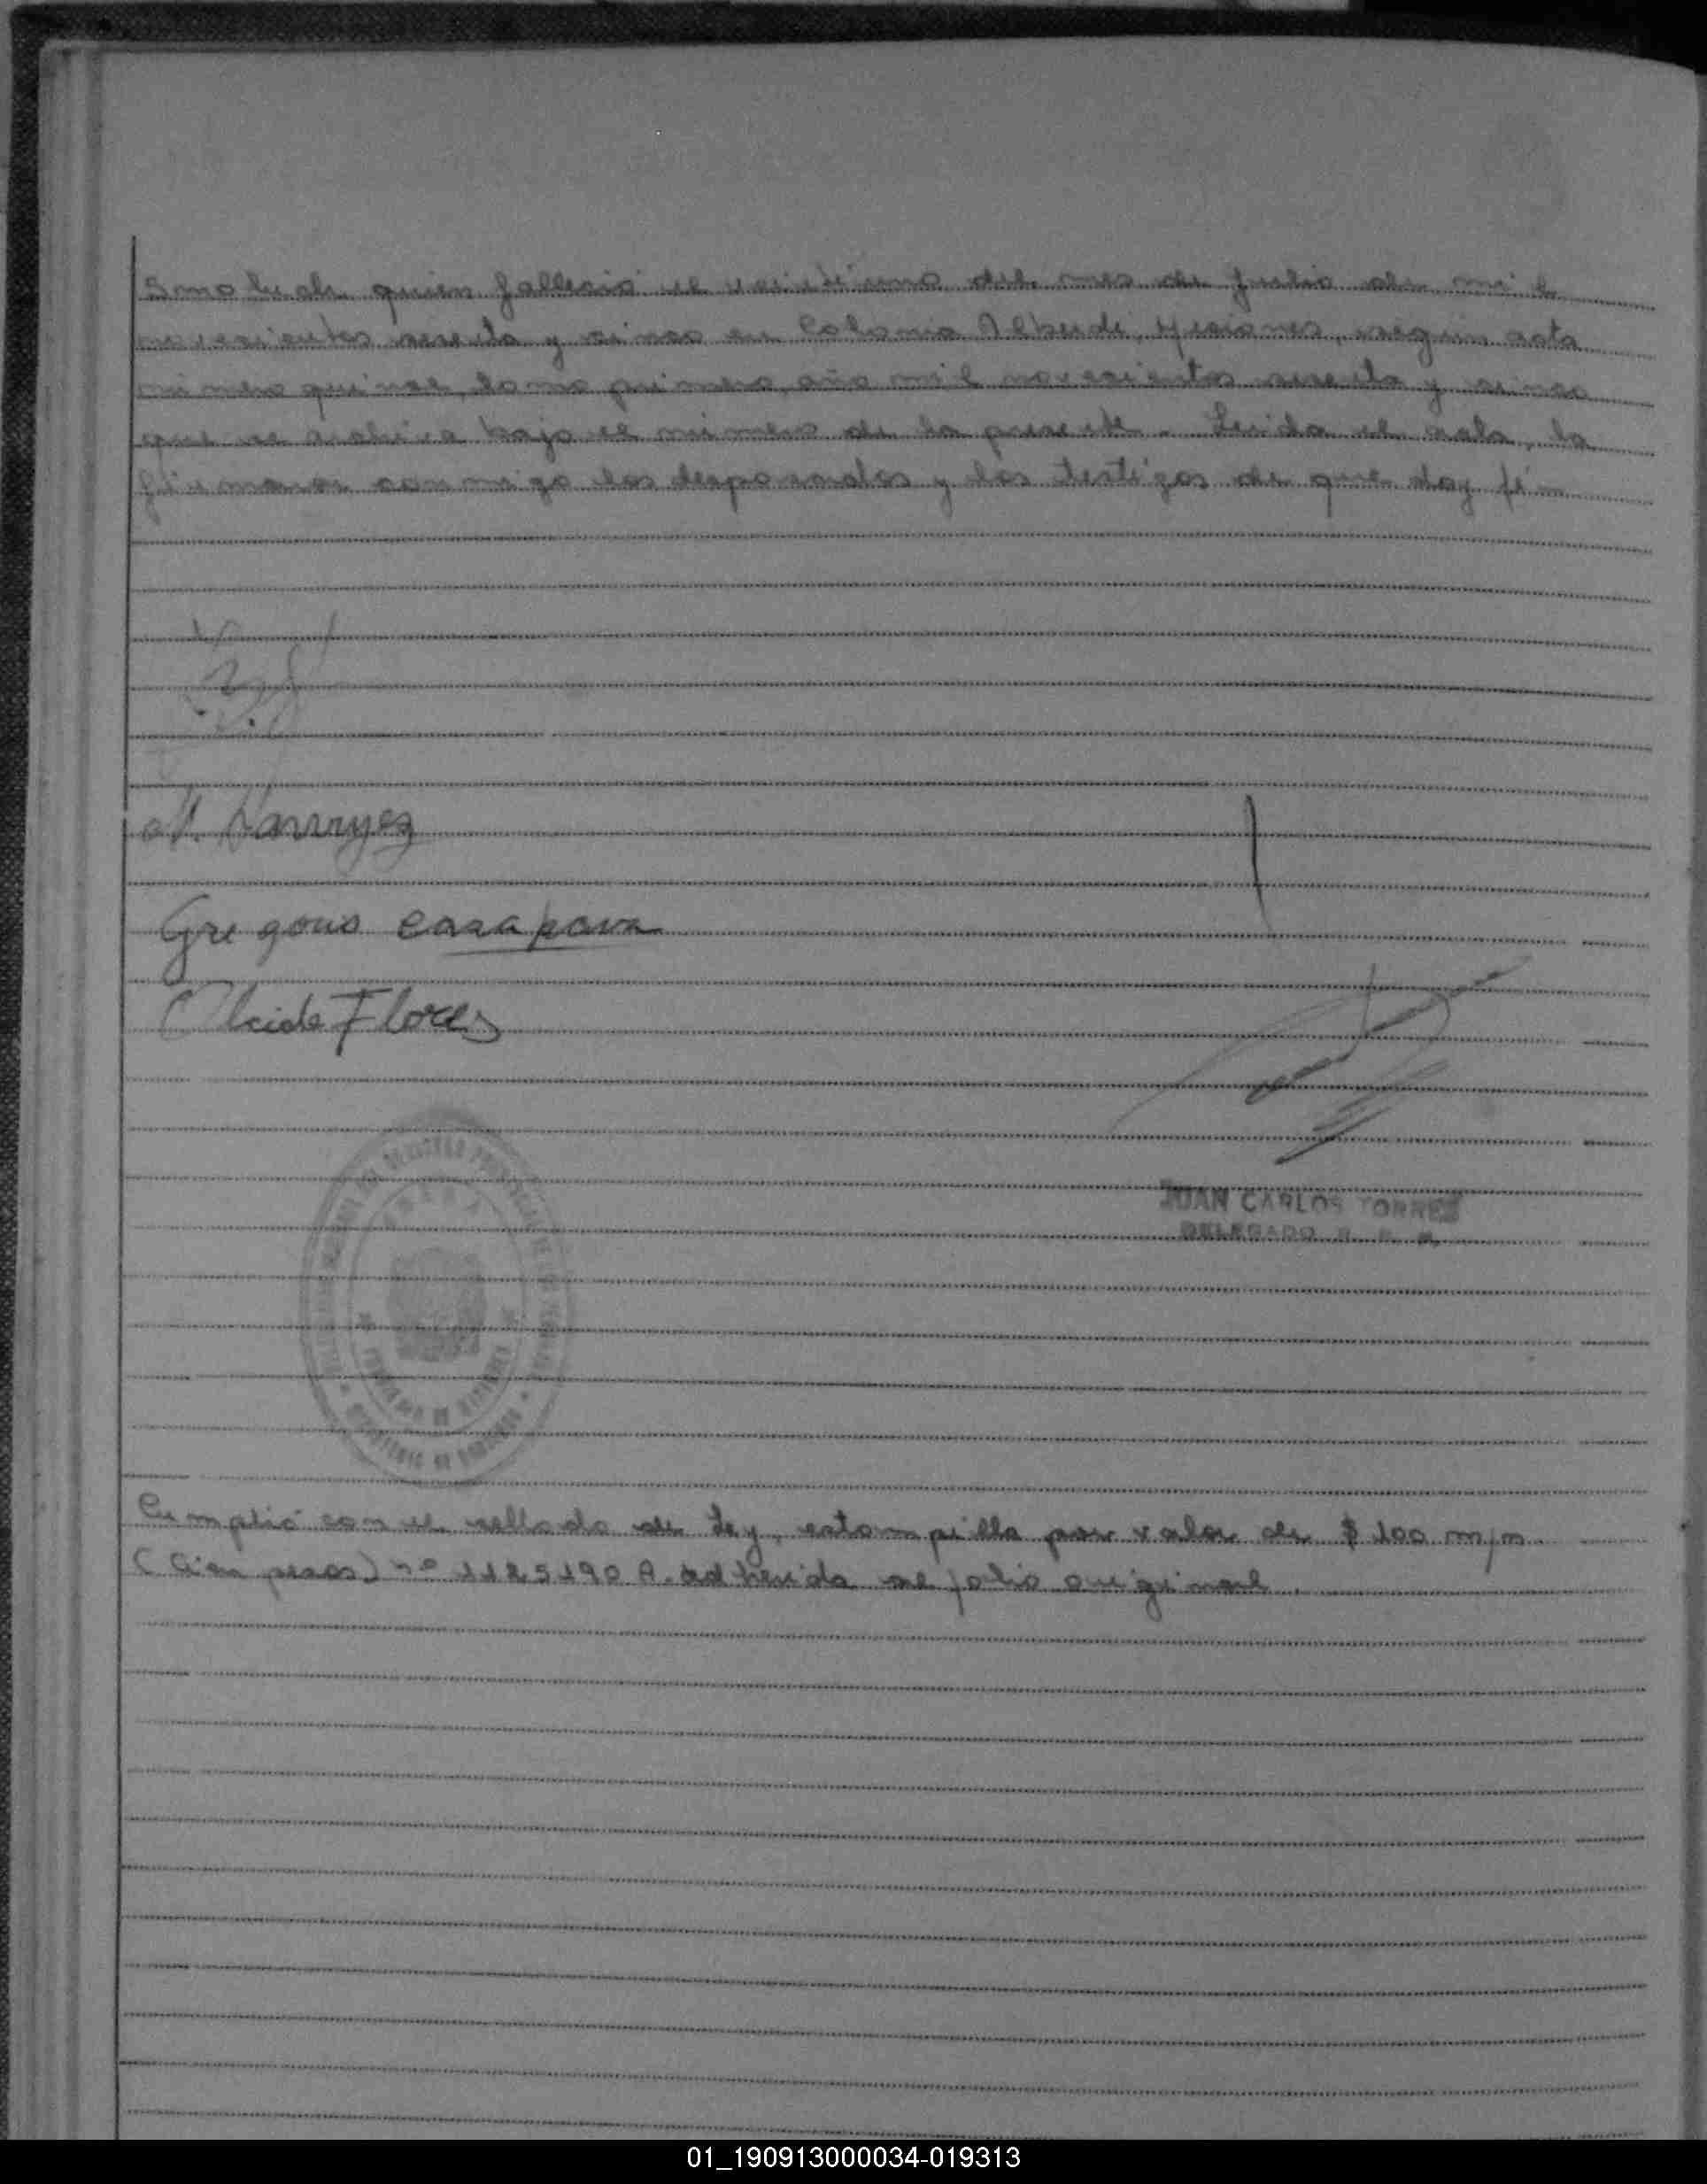 Smoluch quien falleció el veintiuno del mes de Julio de mil
novecientos sesenta y cinco en Colonia Alberdi, Misiones, según acta
número quince, tomo primero, año mil novecientos sesenta y cinco
que se archiva bajo el número de la presente. Leida el acta, la
firmaron conmigo los desposados y los testigos de que doy fé
Gregorio
Alcide Flores
JUAN CARLOS TORRES
DELEGADO R. P. P.
PROVINCIA DE MISIONES
MINISTERIO DE GOBIERNO
Cumplió con el sellado de Ley, estampilla por valor de $ 100 m/n
(Cien pesos) nº 1125190 A. adherida al folio original.
01_190913000034-019313